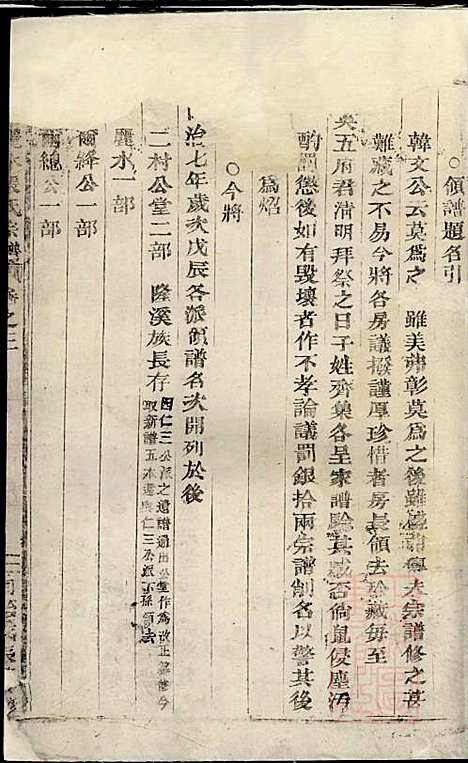 ○領譜題名引
韓文公云莫爲之　雖美弗彰莫爲之後雖盛弗傳夫宗譜修之甚
難藏之不易今將各房議撥謹厚珍惜者房長領去珍藏毎至
癸五府君清明拜祭之日子姓齊集各呈家譜驗其臧否倘鼠侵塵汚
酌罰懲後如有毀壞者作不孝論議罰銀拾兩宗譜削名以警其後
爲炤
○今將
治七年歲次戊辰各派領譜名次開列於後
二村公堂二部　隆溪族長存
因仁三公派之遺譜通出公堂作爲改正
取新譜五本還與仁三公派子孫領去
麗水一部
爾絳公一部
爾總公一部
張氏宗譜卷之三